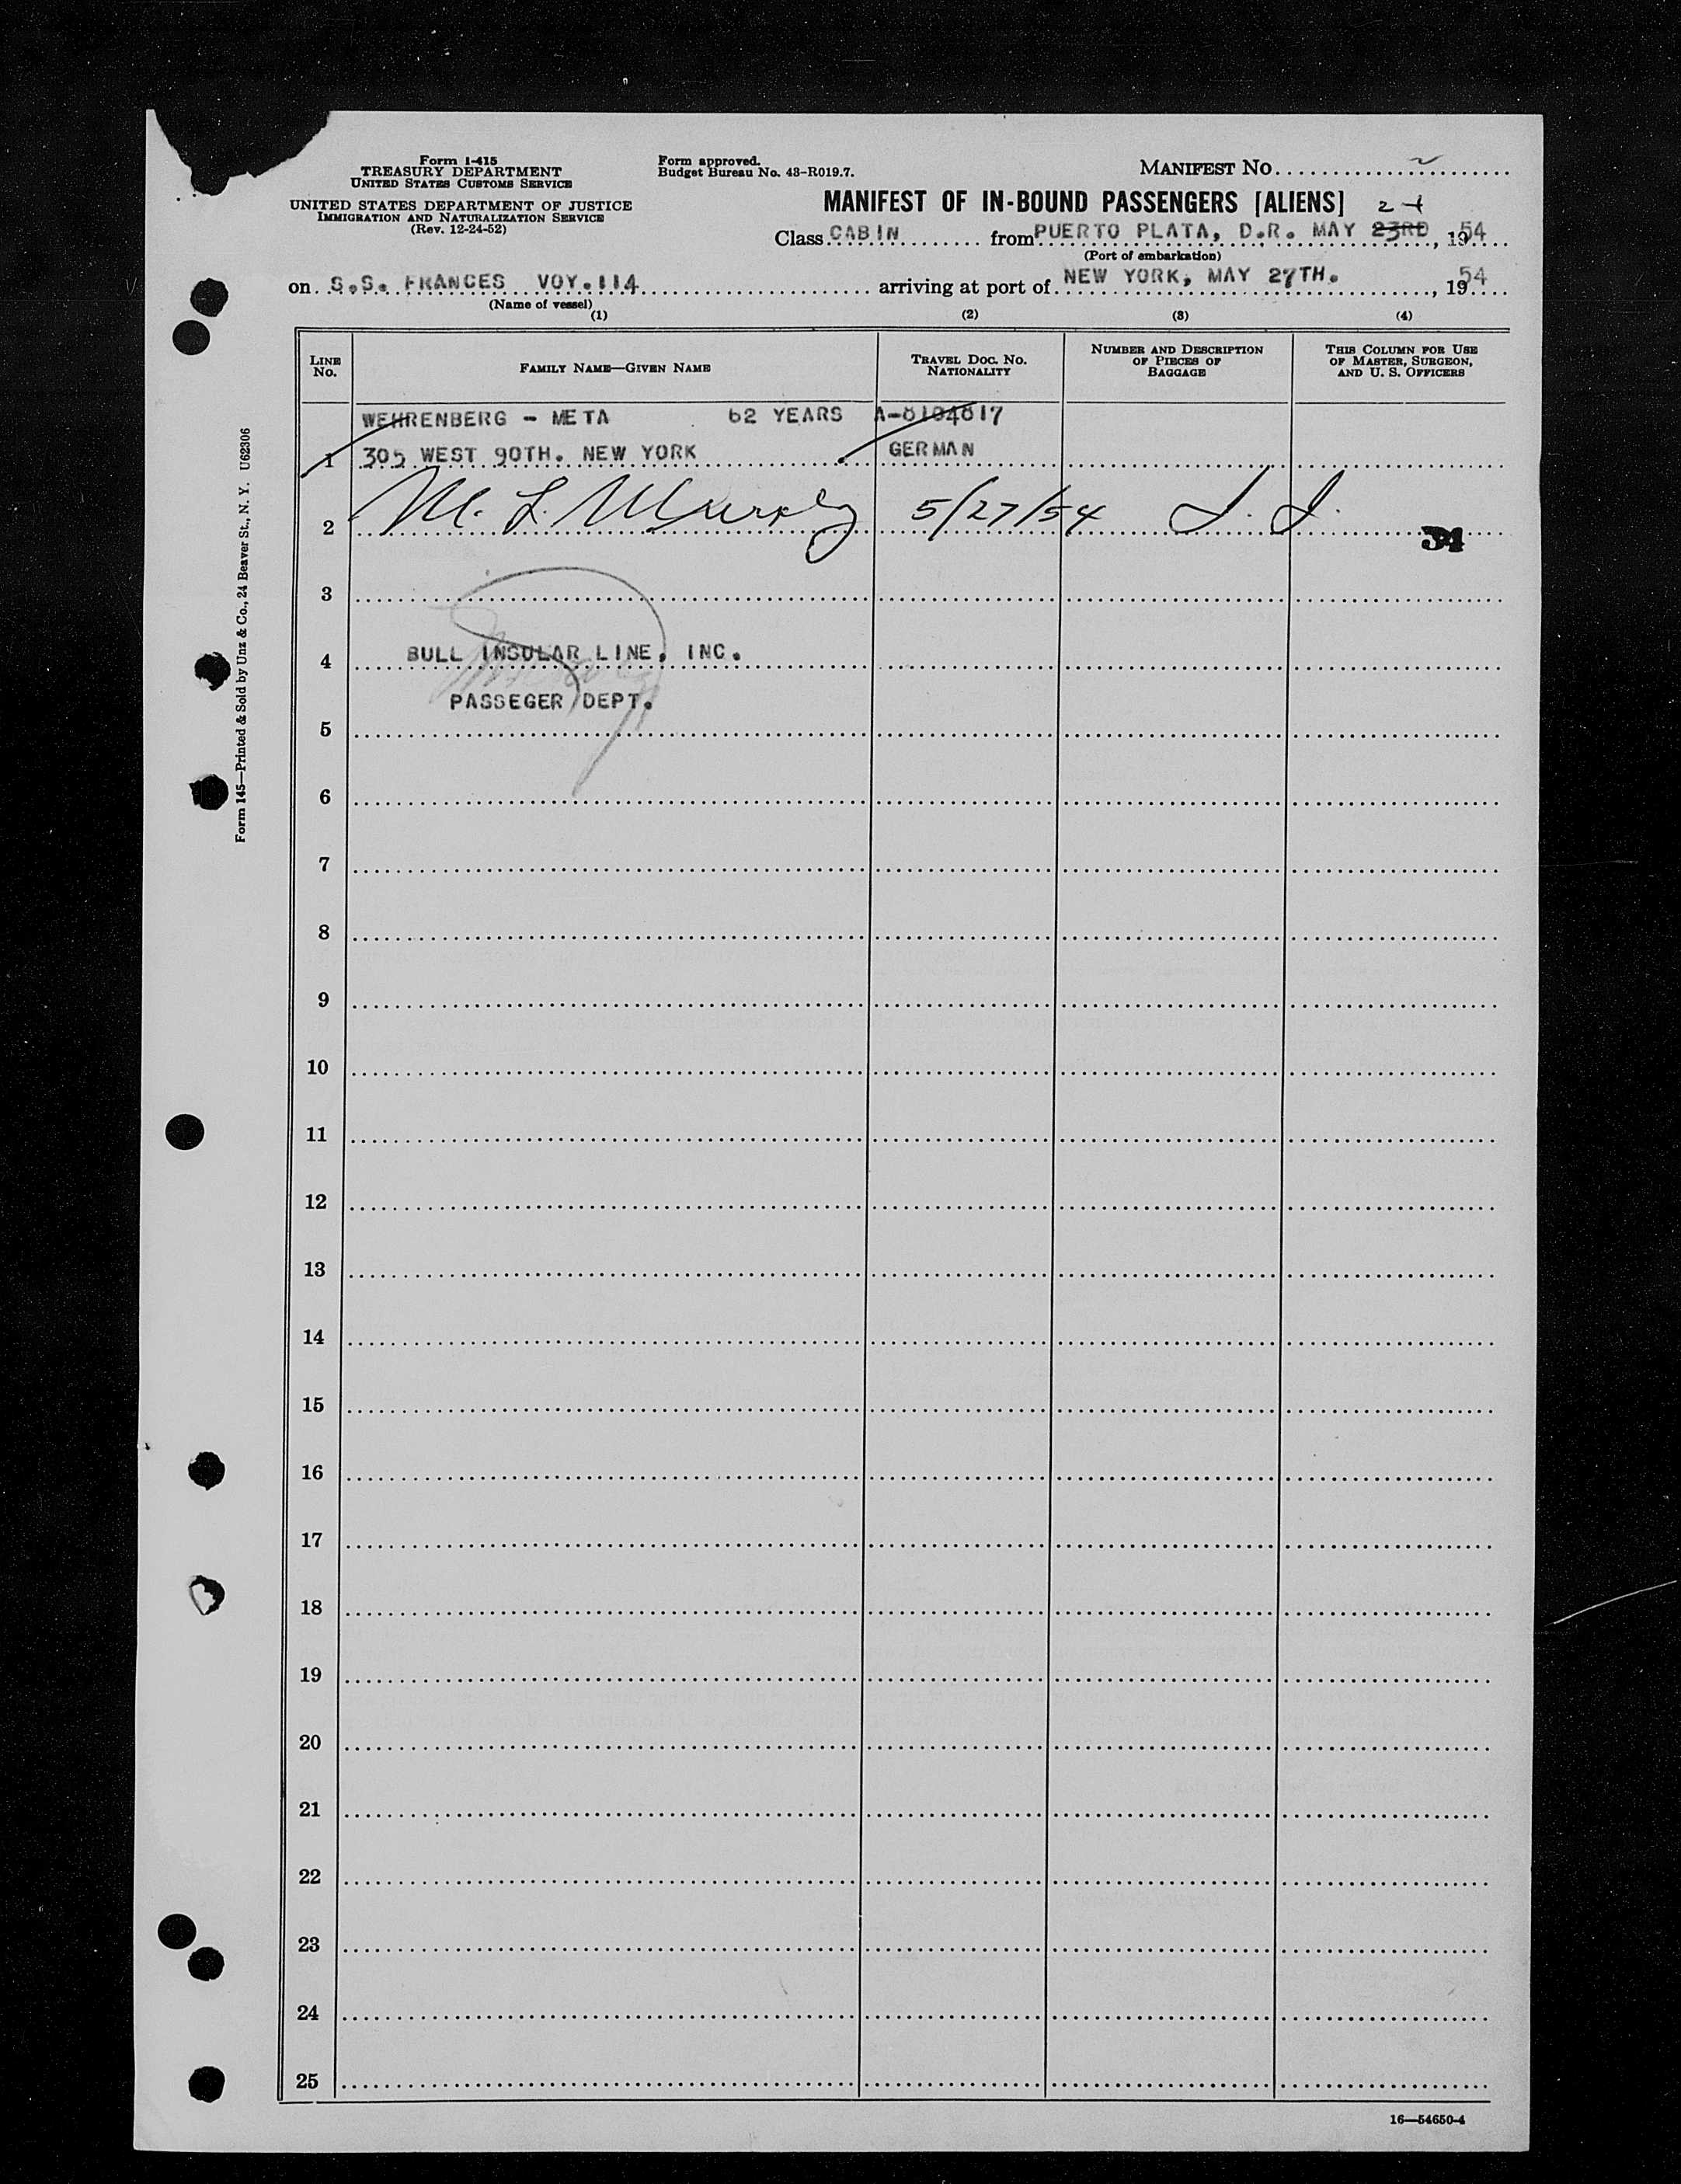 Form I-415
TREASURY DEPARTMENT
UNITED STATES CUSTOMS SERVICE
UNITED STATES DEPARTMENT OF JUSTICE
IMMIGRATION AND NATURALIZATION SERVICE
(Rev. 12-24-52)
Form approved.
Budget Bureau No. 43-R019.7.
MANIFEST No.
MANIFEST OF IN-BOUND PASSENGERS [ALIENS]
Class CABIN from PUERTO PLATA, D.R. MAY 23RD, 1954
(Port of embarkation)
on S.S. FRANCES VOY.114 arriving at port of NEW YORK, MAY 27TH., 1954
(Name of vessel)
(1) (2) (3) (4)
LINE No. FAMILY NAME—GIVEN NAME TRAVEL DOC. NO. NATIONALITY NUMBER AND DESCRIPTION OF PIECES OF BAGGAGE THIS COLUMN FOR USE OF MASTER, SURGEON, AND U. S. OFFICERS
WEHRENBERG - META 62 YEARS
1 305 WEST 90TH. NEW YORK GERMAN
2 M. L. Murphy 5/27/54
3
BULL INSULAR LINE, INC.
4
PASSEGER DEPT.
5
6
7
8
9
10
11
12
13
14
15
16
17
18
19
20
21
22
23
24
25
16—54650-4
Form 145—Printed & Sold by Unz & Co., 24 Beaver St., N. Y. U62306